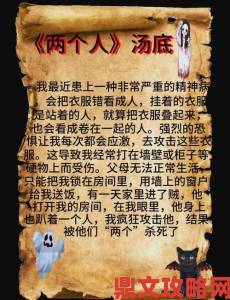 《两个人》汤底
我最近患上一种非常严重的精神病
会把衣服错看成人，挂着的衣服
是站着的人，就算把衣服叠起来，
也会看成卷在一起的人。强烈的恐
惧让我每次都会应激，去攻击这些衣
服。这导致我经常打在墙壁或柜子等
硬物上而受伤。父母无法正常生活，
只能把我锁在房间里，用墙上的窗户
给我送饭，有一天家里进了贼，他
打开我的房间，在我眼里，他身上
也趴着一个人，我疯狂攻击他，结果
被他们“两个”杀死了
鼎文攻略网